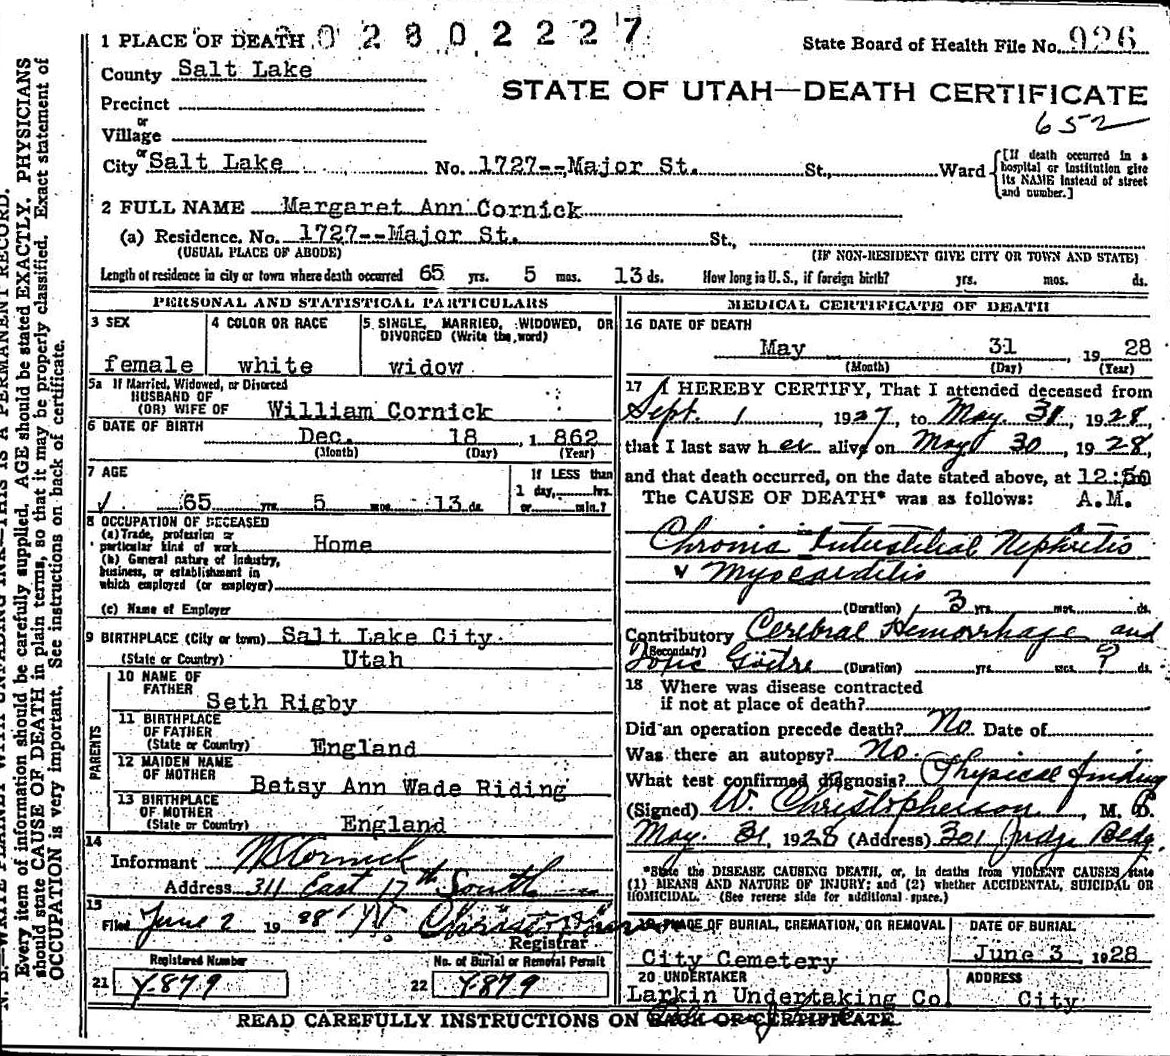 1 PLACE OF DEATH 0 2 8 0 2 2 2 7
State Board of Health File No. 926
County Salt Lake
STATE OF UTAH—DEATH CERTIFICATE
Precinct
or
Village
652
or
City Salt Lake No. 1727--Major St. St., Ward
[If death occurred in a hospital or institution give its NAME instead of street and number.]
2 FULL NAME Margaret Ann Cornick
(a) Residence. No. 1727--Major St. St.,
(USUAL PLACE OF ABODE) (IF NON-RESIDENT GIVE CITY OR TOWN AND STATE)
Length of residence in city or town where death occurred 65 yrs. 5 mos. 13 ds. How long in U. S., if foreign birth? yrs. mos. ds.
PERSONAL AND STATISTICAL PARTICULARS
3 SEX
female
4 COLOR OR RACE
white
5 SINGLE, MARRIED, WIDOWED, OR
DIVORCED (Write the word)
widow
5a If Married, Widowed, or Divorced
HUSBAND OF
(OR) WIFE OF William Cornick
6 DATE OF BIRTH Dec. 18, 1862
(Month) (Day) (Year)
7 AGE
65 yrs. 5 mos. 13 ds.
If LESS than
1 day, hrs.
or min.?
8 OCCUPATION OF DECEASED
(a) Trade, profession or
particular kind of work Home
(b) General nature of Industry,
business, or establishment in
which employed (or employer)
(c) Name of Employer
9 BIRTHPLACE (City or town) Salt Lake City.
(State or Country) Utah
PARENTS
10 NAME OF
FATHER
Seth Rigby
11 BIRTHPLACE
OF FATHER
(State or Country) England
12 MAIDEN NAME
OF MOTHER
Betsy Ann Wade Riding
13 BIRTHPLACE
OF MOTHER
(State or Country) England
14
Informant Cornick
Address 311 East 17th South
15
Filed June 2 1928 W. Christopherson
Registrar
Registered Number
21 4879
No. of Burial or Removal Permit
22 4879
MEDICAL CERTIFICATE OF DEATH
16 DATE OF DEATH
May 31, 1928
(Month) (Day) (Year)
17 I HEREBY CERTIFY, That I attended deceased from
Sept. 1, 1927, to May. 31, 1928,
that I last saw h er alive on May 30, 1928,
and that death occurred, on the date stated above, at 12:50
The CAUSE OF DEATH* was as follows: A.M.
Chronic Interstitial Nephritis
Myocarditis
(Duration) 3 yrs. mos. ds.
Contributory Cerebral Hemorrhage and
(Secondary)
Toxic Goitre (Duration) yrs. mos. ? ds.
18 Where was disease contracted
if not at place of death?
Did an operation precede death? No. Date of
Was there an autopsy? No.
What test confirmed diagnosis? Physical finding
(Signed) W. Christopherson, M. D.
May. 31, 1928 (Address) 301 Judge Bldg.
*State the DISEASE CAUSING DEATH, or, in deaths from VIOLENT CAUSES, state
(1) MEANS AND NATURE OF INJURY; and (2) whether ACCIDENTAL, SUICIDAL OR
HOMICIDAL. (See reverse side for additional space.)
19 PLACE OF BURIAL, CREMATION, OR REMOVAL
City Cemetery
DATE OF BURIAL
June 3, 1928
20 UNDERTAKER
Larkin Undertaking Co.
ADDRESS
City
READ CAREFULLY INSTRUCTIONS ON BACK OF CERTIFICATE.
N. B.—WRITE PLAINLY WITH UNFADING INK—THIS IS A PERMANENT RECORD.
Every item of information should be carefully supplied. AGE should be stated EXACTLY. PHYSICIANS
should state CAUSE OF DEATH in plain terms, so that it may be properly classified. Exact statement of
OCCUPATION is very important. See instructions on back of certificate.